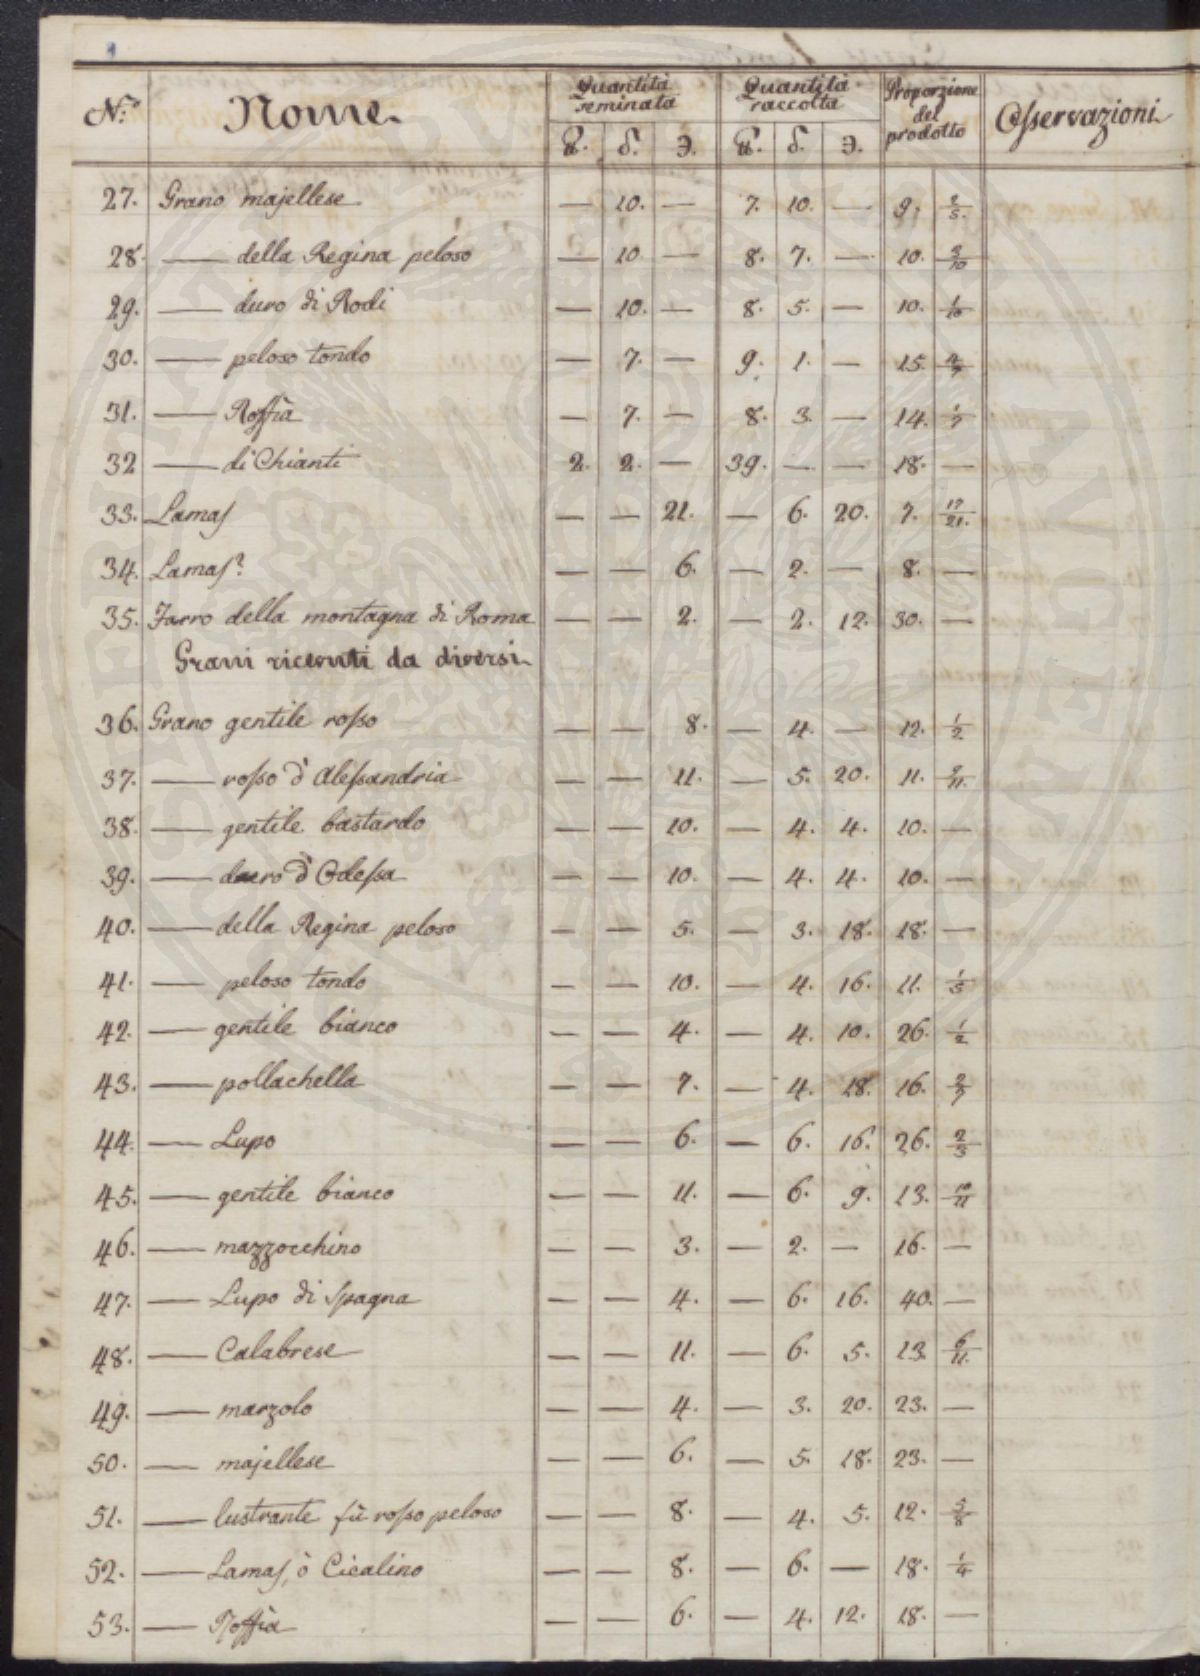 N.° Nome Quantità seminata Quantità raccolta Proporzione del prodotto Osservazioni
℔. δ. ℈. ℔. δ. ℈.
27. Grano majellese — 10. — 7. 10. — 9. 2/5.
28. — della Regina peloso — 10 — 8. 7. — 10. 3/10
29. — duro di Rodi — 10. — 8. 5. — 10. 1/10
30. — peloso tondo — 7. — 9. 1. — 15 4/7
31. — Roffia — 7. — 8. 3. — 14. 1/7
32 — di Chianti 2. 2. — 39. — — 18. —
33. Lamas — — 21. — 6. 20. 7. 17/21.
34. Lamas? — — 6. — 2. — 8. —
35. Farro della montagna di Roma — — 2. — 2. 12. 30. —
Grani ricevuti da diversi
36. Grano gentile rosso — — 8. — 4. — 12. 1/2
37. — rosso d'Alessandria — — 11. — 5. 20. 11. 9/11.
38. — gentile bastardo — — 10. — 4. 4. 10. —
39. — duro d'Odessa — — 10. — 4. 4. 10. —
40. — della Regina peloso — — 5. — 3. 18. 18. —
41. — peloso tondo — — 10. — 4. 16. 11. 1/5
42. — gentile bianco — — 4. — 4. 10. 26. 1/2
43. — pollachella — — 7. — 4. 18. 16. 2/7
44. — Lupo — — 6. — 6. 16. 26. 2/3
45. — gentile bianco — — 11. — 6. 9. 13. 10/11
46. — mazzocchino — — 3. — 2. — 16. —
47. — Lupo di Spagna — — 4. — 6. 16. 40. —
48. — Calabrese — — 11. — 6. 5. 13 6/11.
49. — marzolo — — 4. — 3. 20. 23. —
50. — majellese — — 6. — 5. 18. 23. —
51. — lustrante fù rosso peloso — — 8. — 4. 5. 12. 5/8
52. — Lamas, ò Cicalino — — 8. — 6. — 18. 1/4
53. — Roffia — — 6. — 4. 12. 18. —